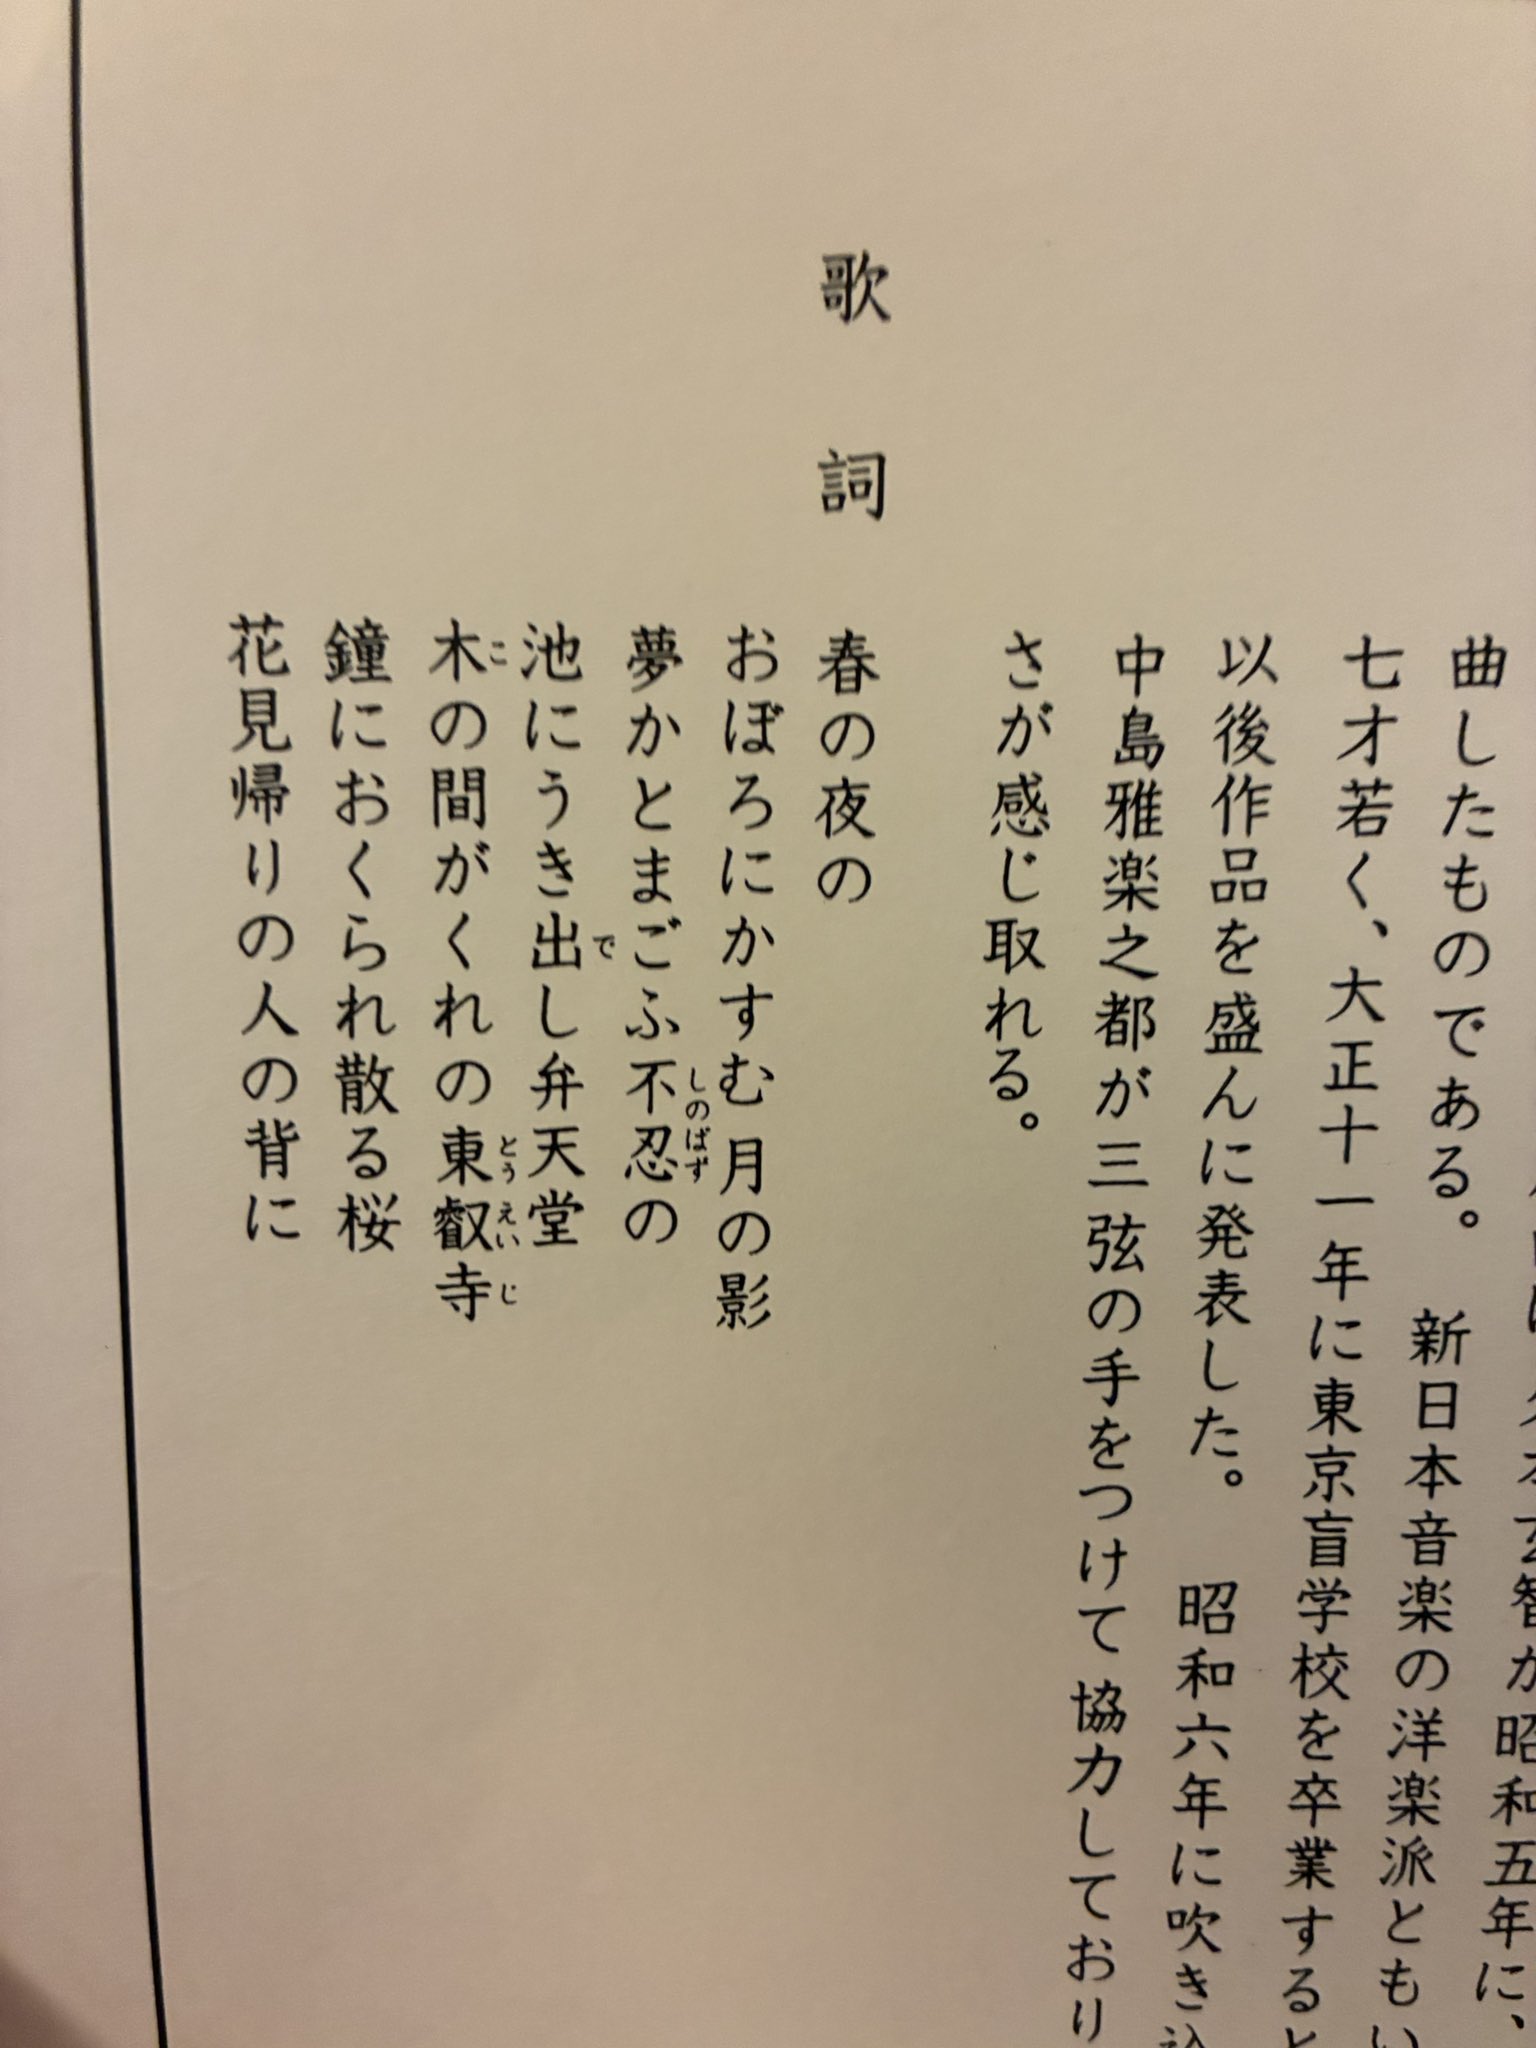 智が昭和五年に、
曲したものである。 新日本音楽の洋楽派ともい
七才若く、大正十一年に東京盲学校を卒業すると
以後作品を盛んに発表した。 昭和六年に吹き込
中島雅楽之都が三弦の手をつけて協力しており
さが感じ取れる。
歌詞
春の夜の
おぼろにかすむ月の影
夢かとまごふ不忍の
しのばず
池にうき出し弁天堂
で
木の間がくれの東叡寺
こ とうえいじ
鐘におくられ散る桜
花見帰りの人の背に